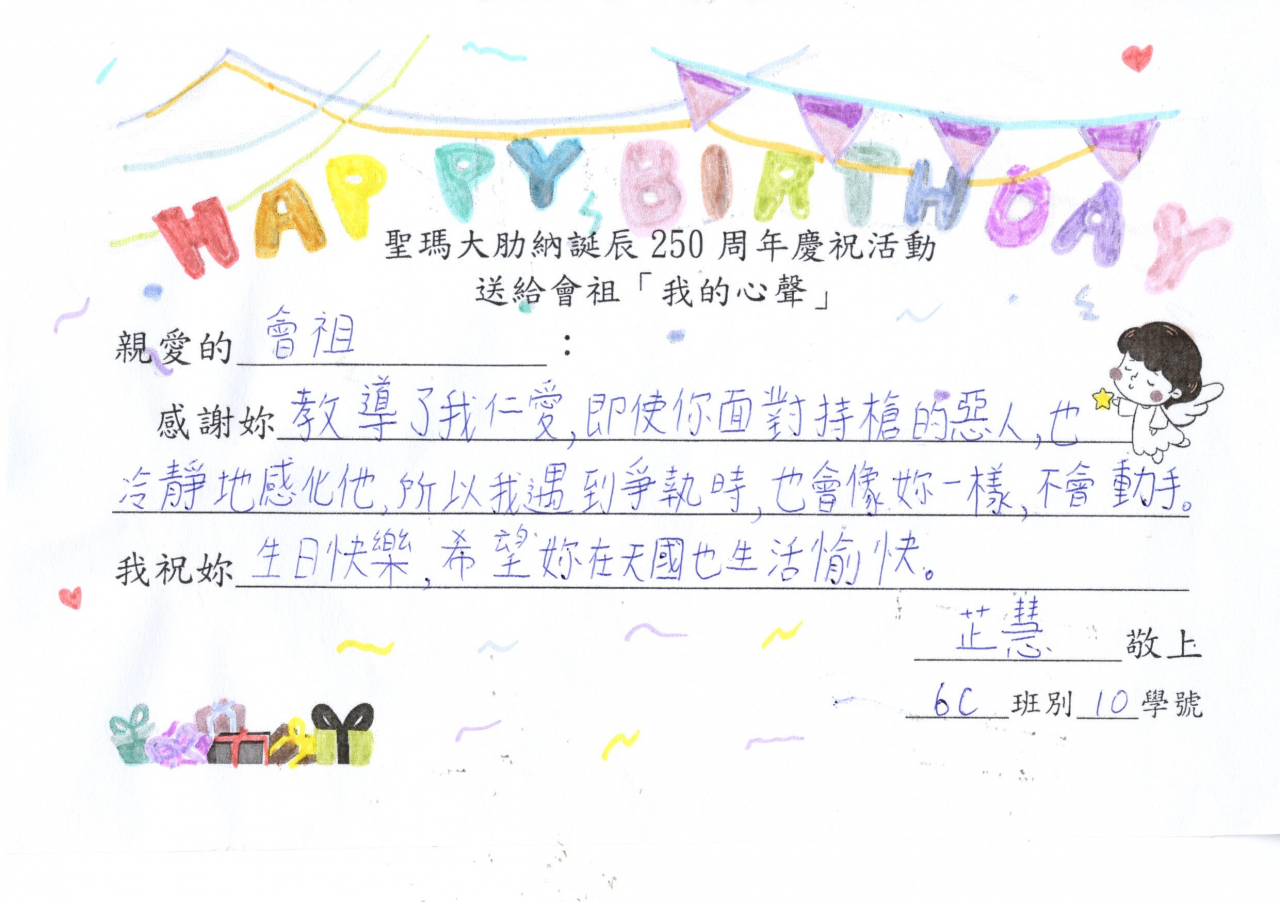 HAPPY BIRTHDAY
聖瑪大肋納誕辰 250 周年慶祝活動
送給會祖「我的心聲」
親愛的 會祖 :
感謝妳 教導了我仁愛,即使你面對持槍的惡人,也
冷靜地感化他,所以我遇到爭執時,也會像妳一樣,不會動手。
我祝妳 生日快樂,希望妳在天國也生活愉快。
芷慧 敬上
6C 班別 10 學號